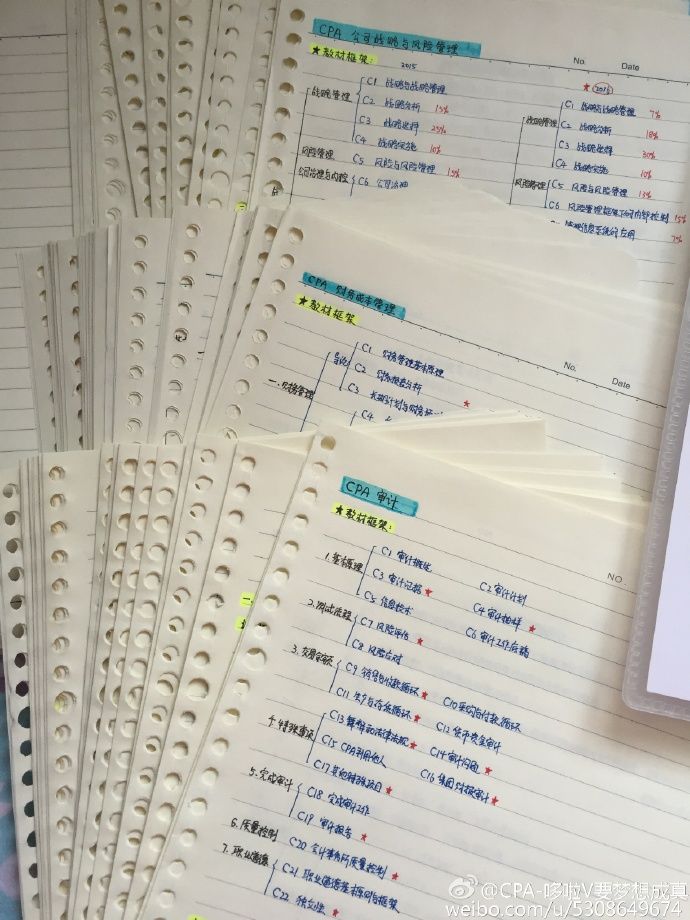 CPA 公司战略与风险管理
No. Date
★教材框架: 2015
★ 2016
战略管理
C1 战略与战略管理
C2 战略分析 15%
C3 战略选择 25%
C4 战略实施 10%
风险管理 C5 风险与风险管理 15%
公司治理与内控 C6 公司治理
战略管理
C1 战略与战略管理 7%
C2 战略分析 18%
C3 战略选择 30%
C4 战略实施 10%
风险管理
C5 风险与风险管理 13%
C6 风险管理框架下的内部控制 15%
信息系统的应用 7%
CPA 财务成本管理
★教材框架
No. Date
一.财务管理
导论
C1 财务管理基本原理
C2 财务报表分析
C3 长期计划与财务 ★
C4
CPA 审计
★教材框架:
NO.
1.基本原理
C1 审计概述 C2 审计计划
C3 审计证据★ C4 审计抽样★
C5 信息技术 C6 审计工作底稿
2.测试流程
C7 风险评估★
C8 风险应对
3.交易实项
C9 销售与收款循环★ C10 采购与付款循环
C11 生产与存货循环★ C12 货币资金审计
4.特殊事项
C13 舞弊和法律法规★ C14 审计沟通★
C15 CPA利用他人 C16 集团财报审计★
C17 其他特殊项目★
5.完成审计
C18 完成审计工作
C19 审计报告★
6.质量控制 C20 会计事务所质量控制★
7.职业道德
C21 职业道德基本原则与框架
C22 独立性★
@CPA-哆啦V要梦想成真
weibo.com/u/5308649674